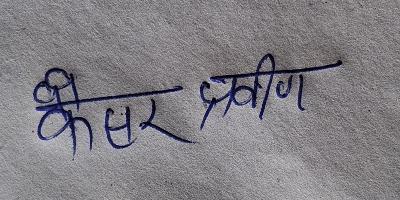 कैसर प्रवीण